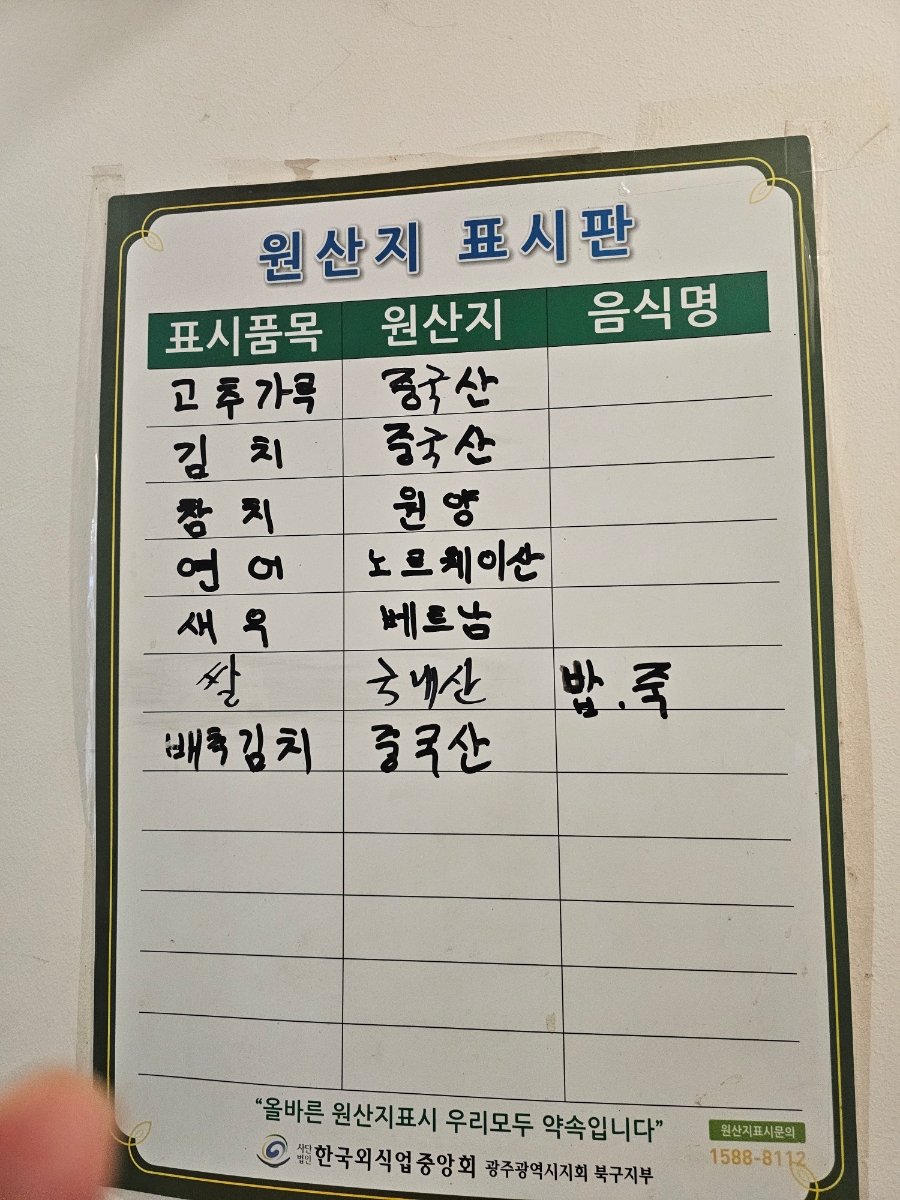 원산지 표시판
표시품목 원산지 음식명
고추가루 중국산
김치 중국산
참치 원양
연어 노르웨이산
새우 베트남
쌀 국내산 밥.죽
배추김치 중국산
“올바른 원산지표시 우리모두 약속입니다”
원산지표시문의
사단법인 한국외식업중앙회 광주광역시지회 북구지부
1588-8112